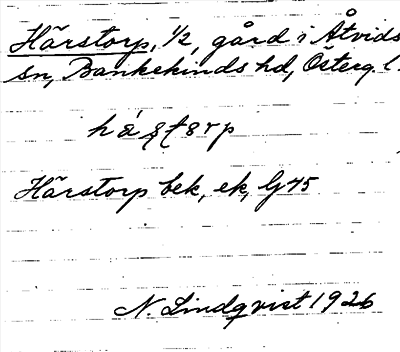 Härstorp, 1/2, gård i Åtvids
sn, Bankekinds hd, Österg. l.
háʂʈɵrp
Härstorp bek, ek, G 45
N. Lindqvist 1926